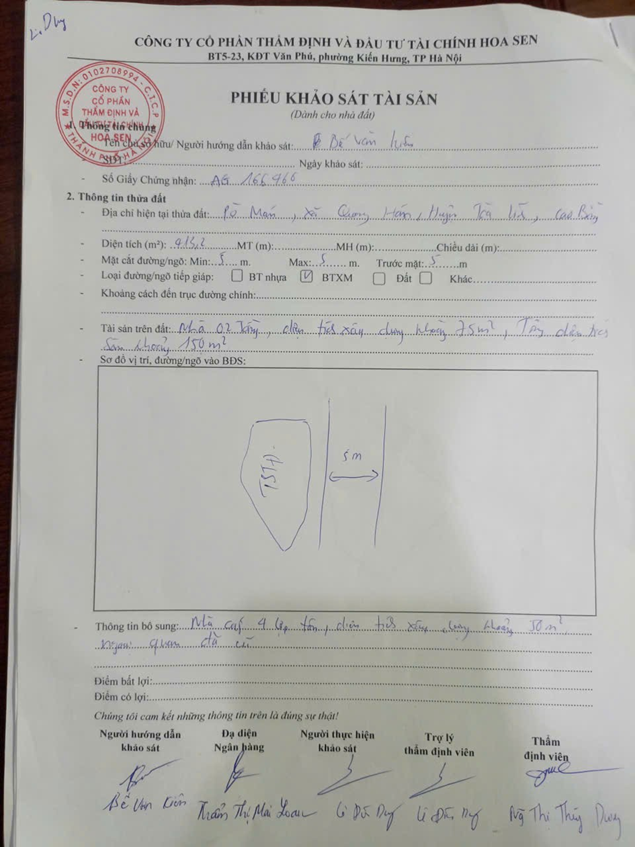 L. Duy
CÔNG TY CỔ PHẦN THẨM ĐỊNH VÀ ĐẦU TƯ TÀI CHÍNH HOA SEN
BT5-23, KĐT Văn Phú, phường Kiến Hưng, TP Hà Nội
M.S.D.N: 0102708994 - C.T.C.P
CÔNG TY
CỔ PHẦN
THẨM ĐỊNH VÀ
ĐẦU TƯ TÀI CHÍNH
HOA SEN
THÀNH PHỐ HÀ NỘI
PHIẾU KHẢO SÁT TÀI SẢN
(Dành cho nhà đất)
1. Thông tin chung
- Tên chủ sở hữu/ Người hướng dẫn khảo sát: Bế Văn Kiên
- SĐT: Ngày khảo sát:
- Số Giấy Chứng nhận: AG 166966
2. Thông tin thửa đất
- Địa chỉ hiện tại thửa đất: Pò Mán, xã Hán, Huyện Trà Lĩnh, Cao Bằng
- Diện tích (m²): 913,2 MT (m): MH (m): Chiều dài (m):
- Mặt cắt đường/ngõ: Min: 5 m. Max: 5 m. Trước mặt: 5 m
- Loại đường/ngõ tiếp giáp: BT nhựa BTXM Đất Khác
- Khoảng cách đến trục đường chính:
- Tài sản trên đất: Nhà 02 tầng, diện tích xây dựng khoảng 75m², Tổng diện tích
sàn khoảng 150m²
- Sơ đồ vị trí, đường/ngõ vào BĐS:
TSTĐ
5m
- Thông tin bổ sung: Nhà cấp 4 lợp tôn, diện tích xây dựng khoảng 50m²
ngoại quan đã cũ
Điểm bất lợi:
Điểm có lợi:
Chúng tôi cam kết những thông tin trên là đúng sự thật!
Người hướng dẫn khảo sát
Đạ diện Ngân hàng
Người thực hiện khảo sát
Trợ lý thẩm định viên
Thẩm định viên
Bế Văn Kiên
Trần Thị Mai Loan
Lê Đức Duy
Lê Đức Duy
Ng Thị Thùy Dung